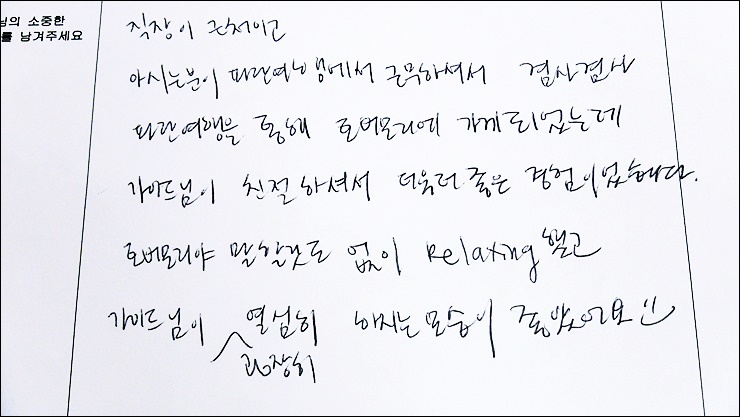 님의 소중한
를 남겨주세요
직장이 근처이고
아시는분이 파란여행에서 근무하셔서 겸사겸사
파란여행을 통해 호버모리에 가게되었는데
가이드님이 친절하셔서 더욱더 좋은 경험이었습니다.
호버모리야 말할것도 없이 Relaxing했고
가이드님이 굉장히 열심히 하시는 모습이 좋았어요 :)